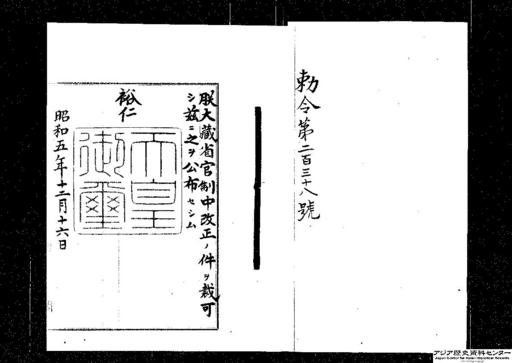 勅令第二百三十八號
朕大藏省官制中改正ノ件ヲ裁可
シ茲ニ之ヲ公布セシム
裕仁
天皇御璽
昭和五年十二月十六日
アジア歴史資料センター
Japan Center for Asian Historical Records